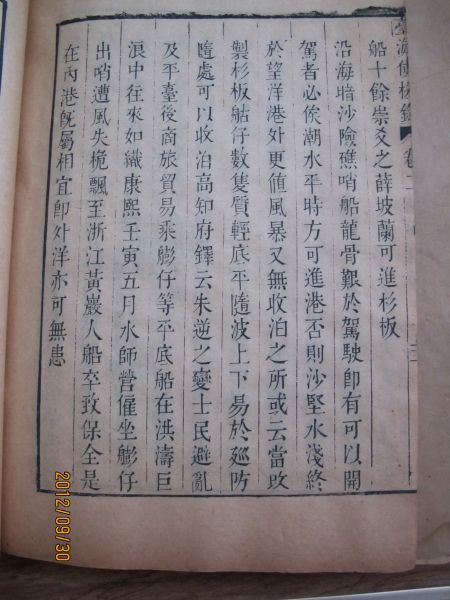 臺海使槎錄 卷二
船十餘崇爻之薛坡蘭可進杉板
沿海暗沙險礁哨船龍骨艱於駕駛卽有可以開
駕者必俟潮水平時方可進港否則沙堅水淺終
於望洋港外更値風暴又無收泊之所或云當改
製杉板𦨭仔數隻質輕底平隨波上下易於廵防
隨處可以收泊高知府鐸云朱逆之變士民避亂
及平臺後商旅貿易乘艍仔等平底船在洪濤巨
浪中往來如織康熙壬寅五月水師營僱坐艍仔
出哨遭風失桅飄至浙江黃巖人船卒致保全是
在內港旣屬相宜卽外洋亦可無患
2012/09/30